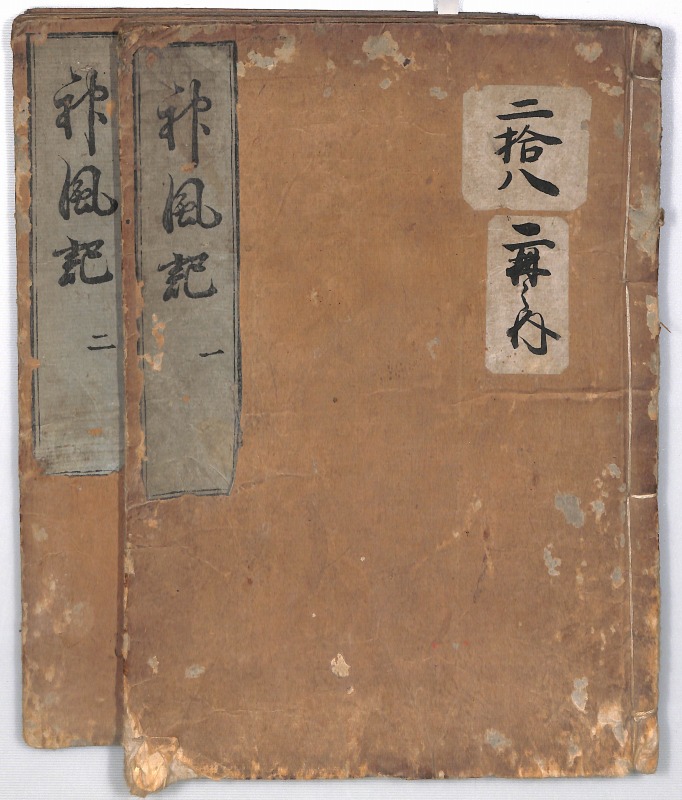 二拾八
二冊之内
神風記 一
神風記 二